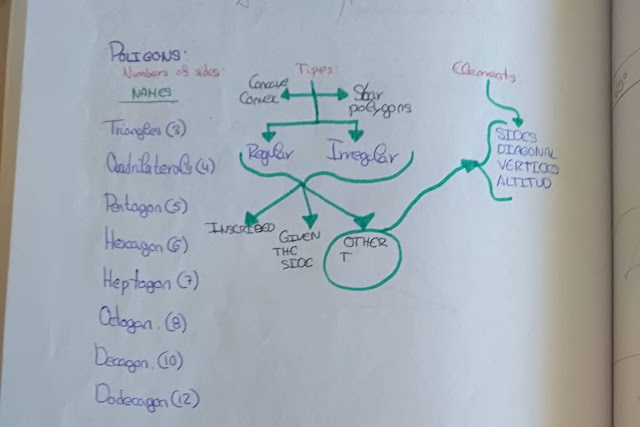 POLIGONS:
Numbers of sides:
NAMES
Triangles (3)
Quadrilaterals (4)
Pentagon (5)
Hexagon (6)
Heptagon (7)
Octogon. (8)
Decagon. (10)
Dodecagon (12)
Tipes:
Concave
Convex
Star
polygons
Regular
Irregular
INSCRIBED
GIVEN
THE
SIDE
OTHER
T
Elements:
SIDES
DIAGONAL
VERTICES
ALTITUD